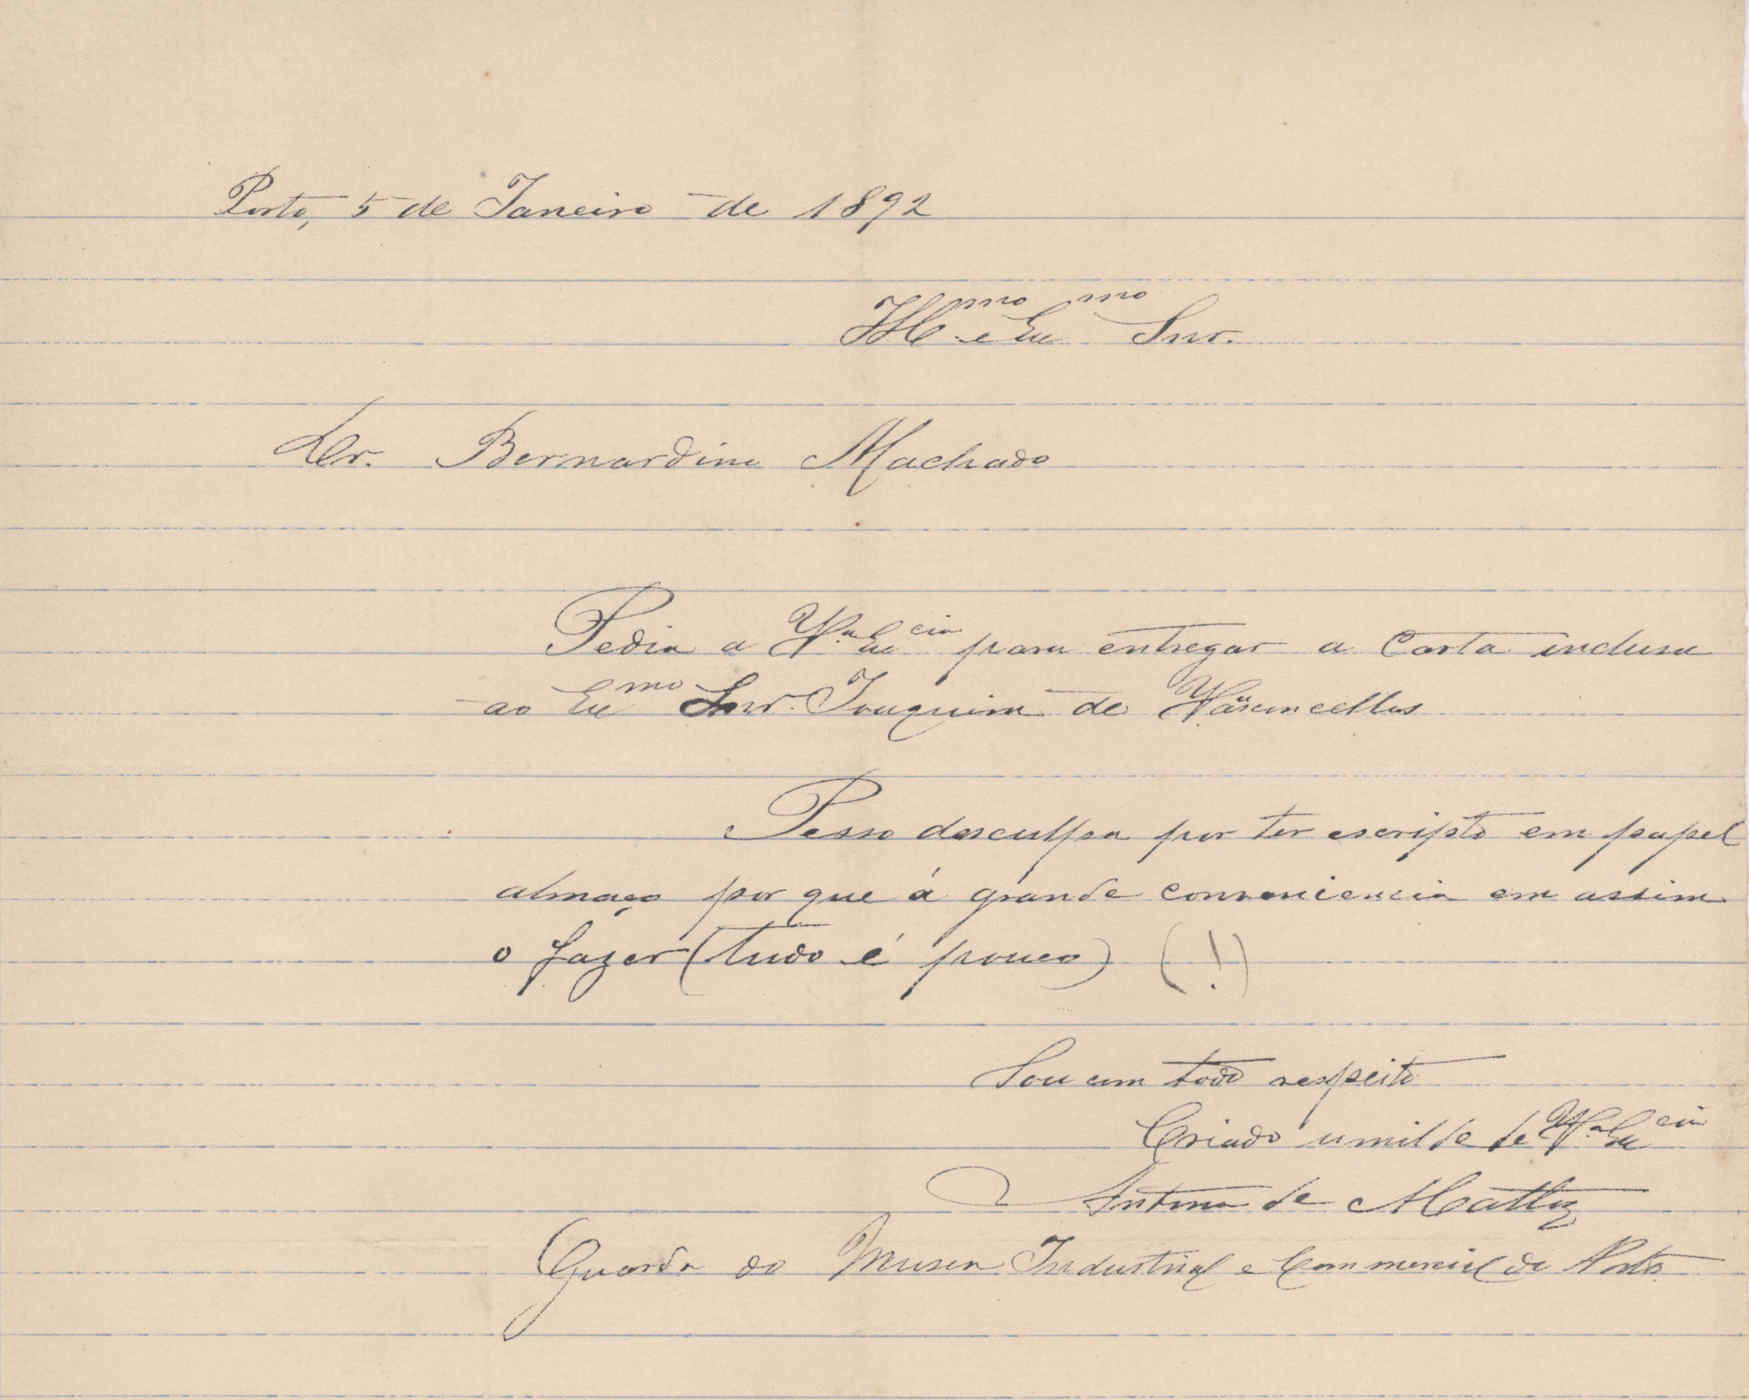 Porto, 5 de Janeiro de 1892
Ill.mo e Exc.mo Snr.
Dr. Bernardino Machado
Pedia a V.a Exc.cia para entregar a Carta inclusa
ao Exc.mo Snr. Joaquim de Vasconcellos
Pesso desculpa por ter escripto em papel
almaço por que á grande conveniencia em assim
o fazer (tudo é pouco) (!)
Sou com todo respeito
Criado umilde de V.a Exc.cia
Antonio de Mattos
Guarda do Museu Industrial e Commercial do Porto